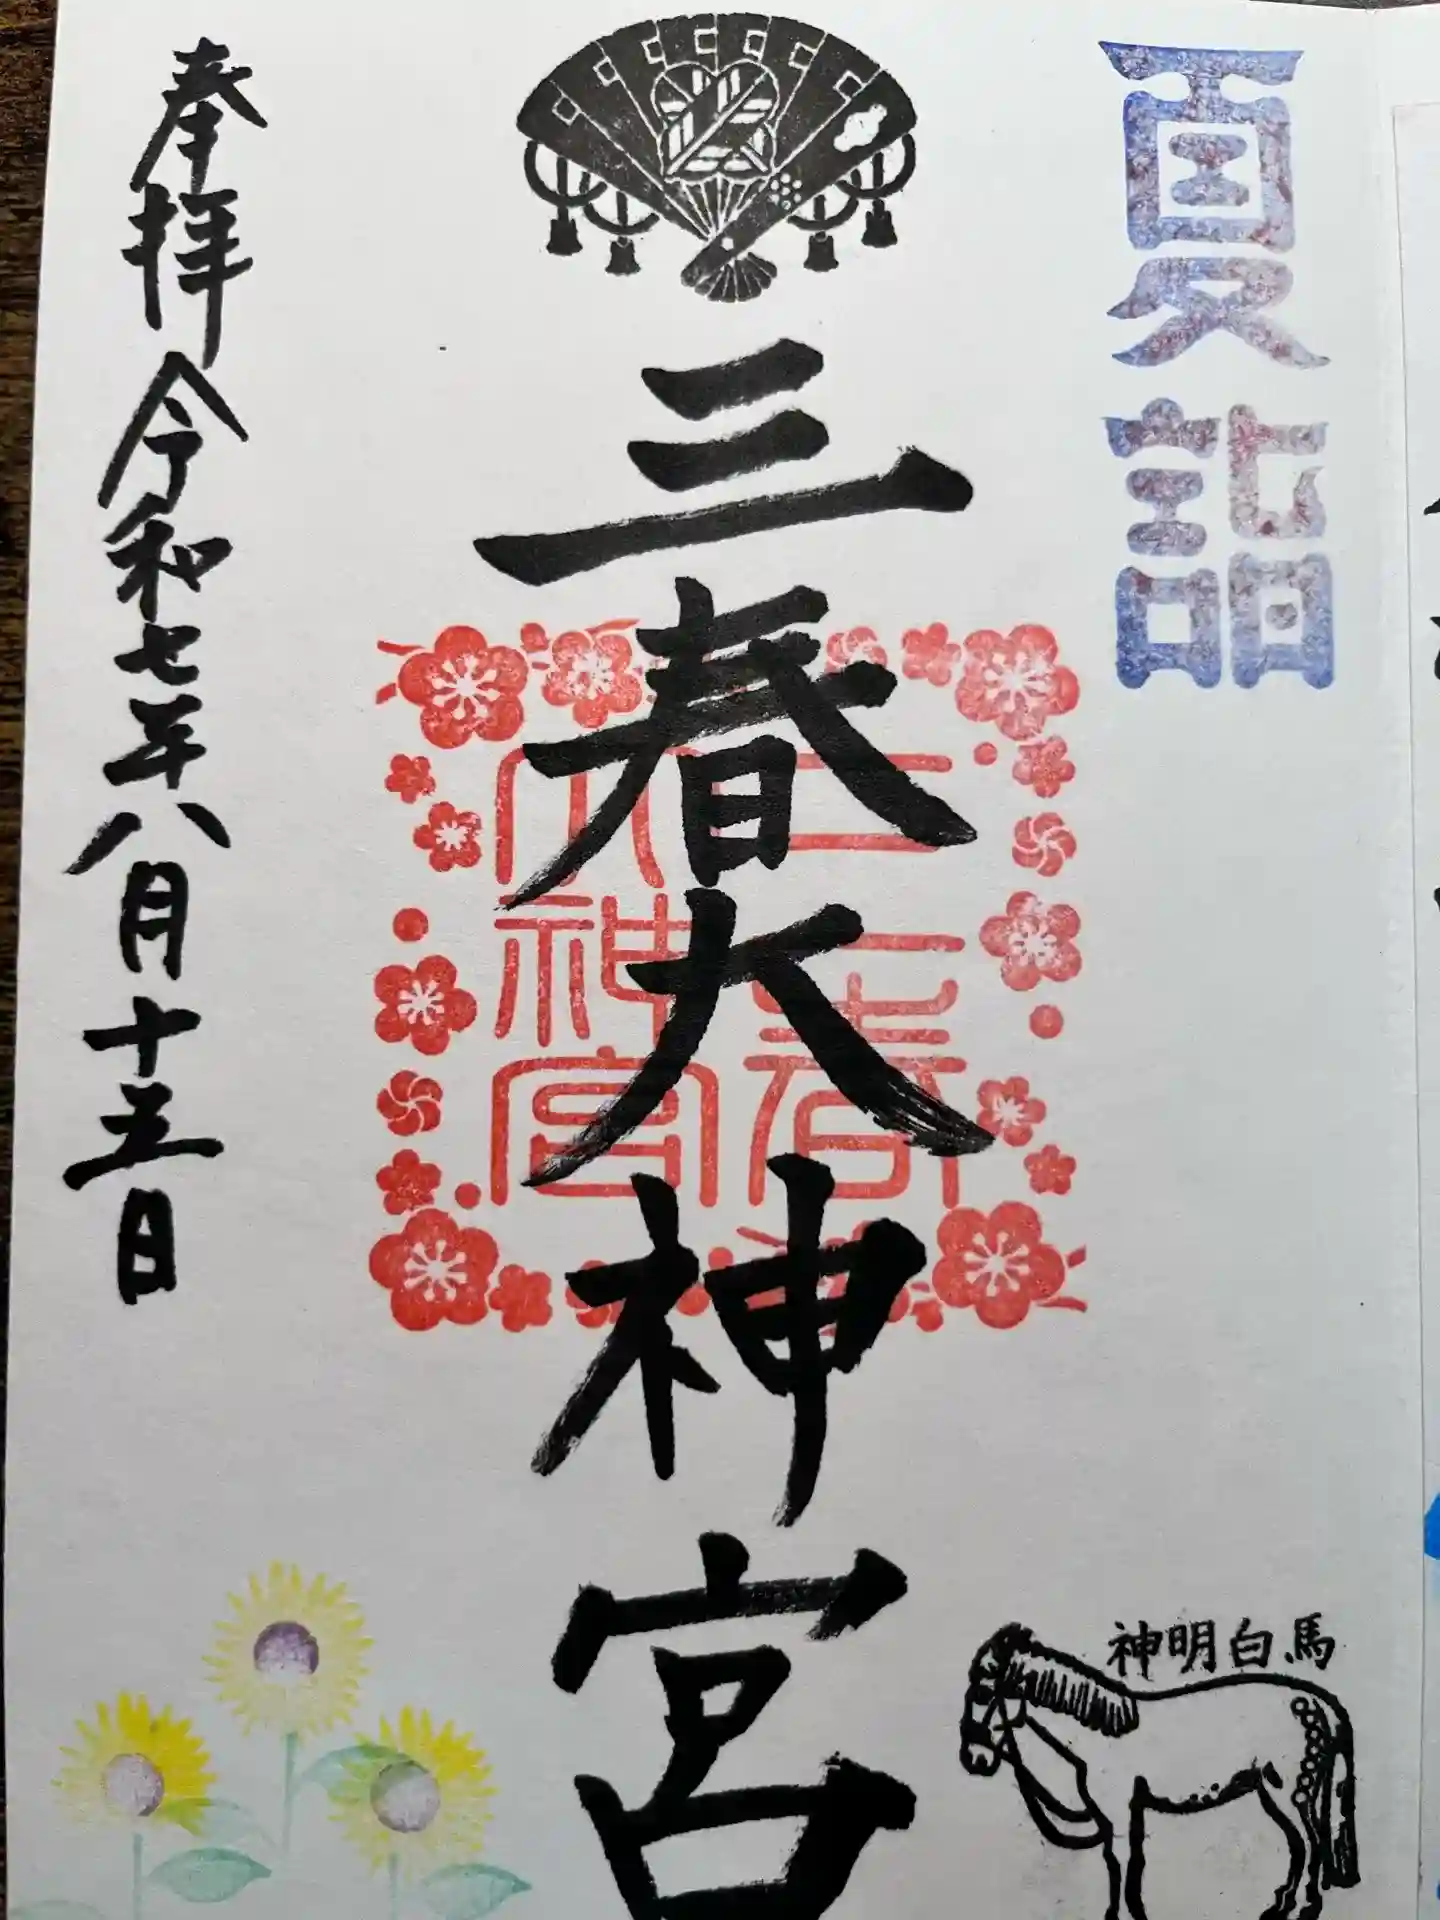 夏詣
神明白馬
三春大神宮
三春大神宮
奉拝 令和七年八月十五日